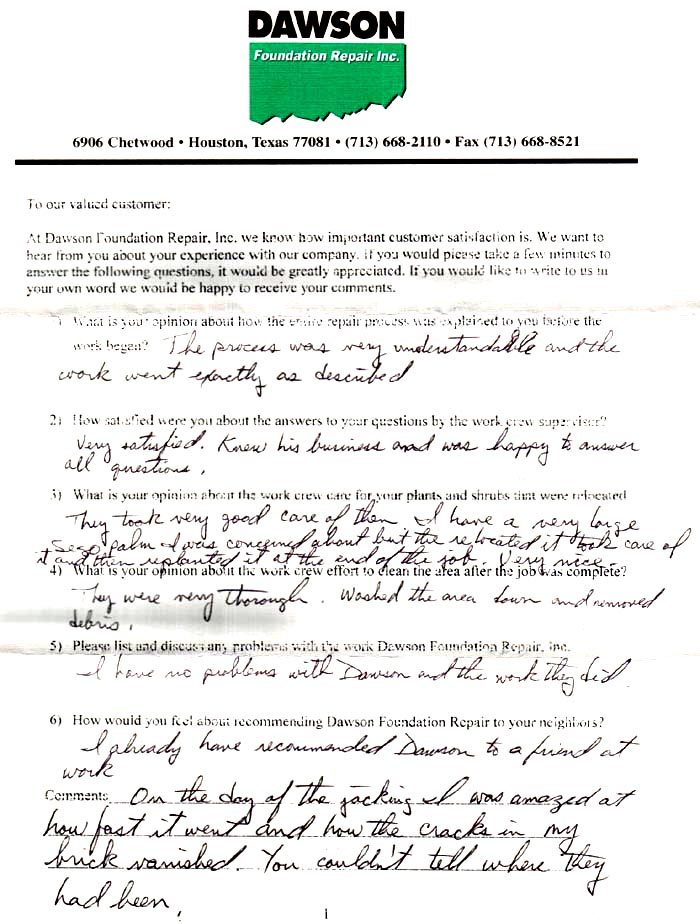 DAWSON
Foundation Repair Inc.
6906 Chetwood • Houston, Texas 77081 • (713) 668-2110 • Fax (713) 668-8521
To our valued customer:
At Dawson Foundation Repair, Inc. we know how important customer satisfaction is. We want to
hear from you about your experience with our company. If you would please take a few minutes to
answer the following questions, it would be greatly appreciated. If you would like to write to us in
your own word we would be happy to receive your comments.
1) What is your opinion about how the entire repair process was explained to you before the
work began? The process was very understandable and the
work went exactly as described
2) How satisfied were you about the answers to your questions by the work crew supervisor?
Very satisfied. Knew his business and was happy to answer
all questions.
3) What is your opinion about the work crew care for your plants and shrubs that were relocated
They took very good care of them. I have a very large
Sego palm I was concerned about but the relocated it took care of
it and then replanted it at the end of the job. Very nice.
4) What is your opinion about the work crew effort to clean the area after the job was complete?
They were very thorough. Washed the area down and removed
debris.
5) Please list and discuss any problems with the work Dawson Foundation Repair, Inc.
I have no problems with Dawson and the work they did
6) How would you feel about recommending Dawson Foundation Repair to your neighbors?
I already have recommended Dawson to a friend at
work
Comments On the day of the jacking I was amazed at
how fast it went and how the cracks in my
brick vanished. You couldn't tell where they
had been.
1